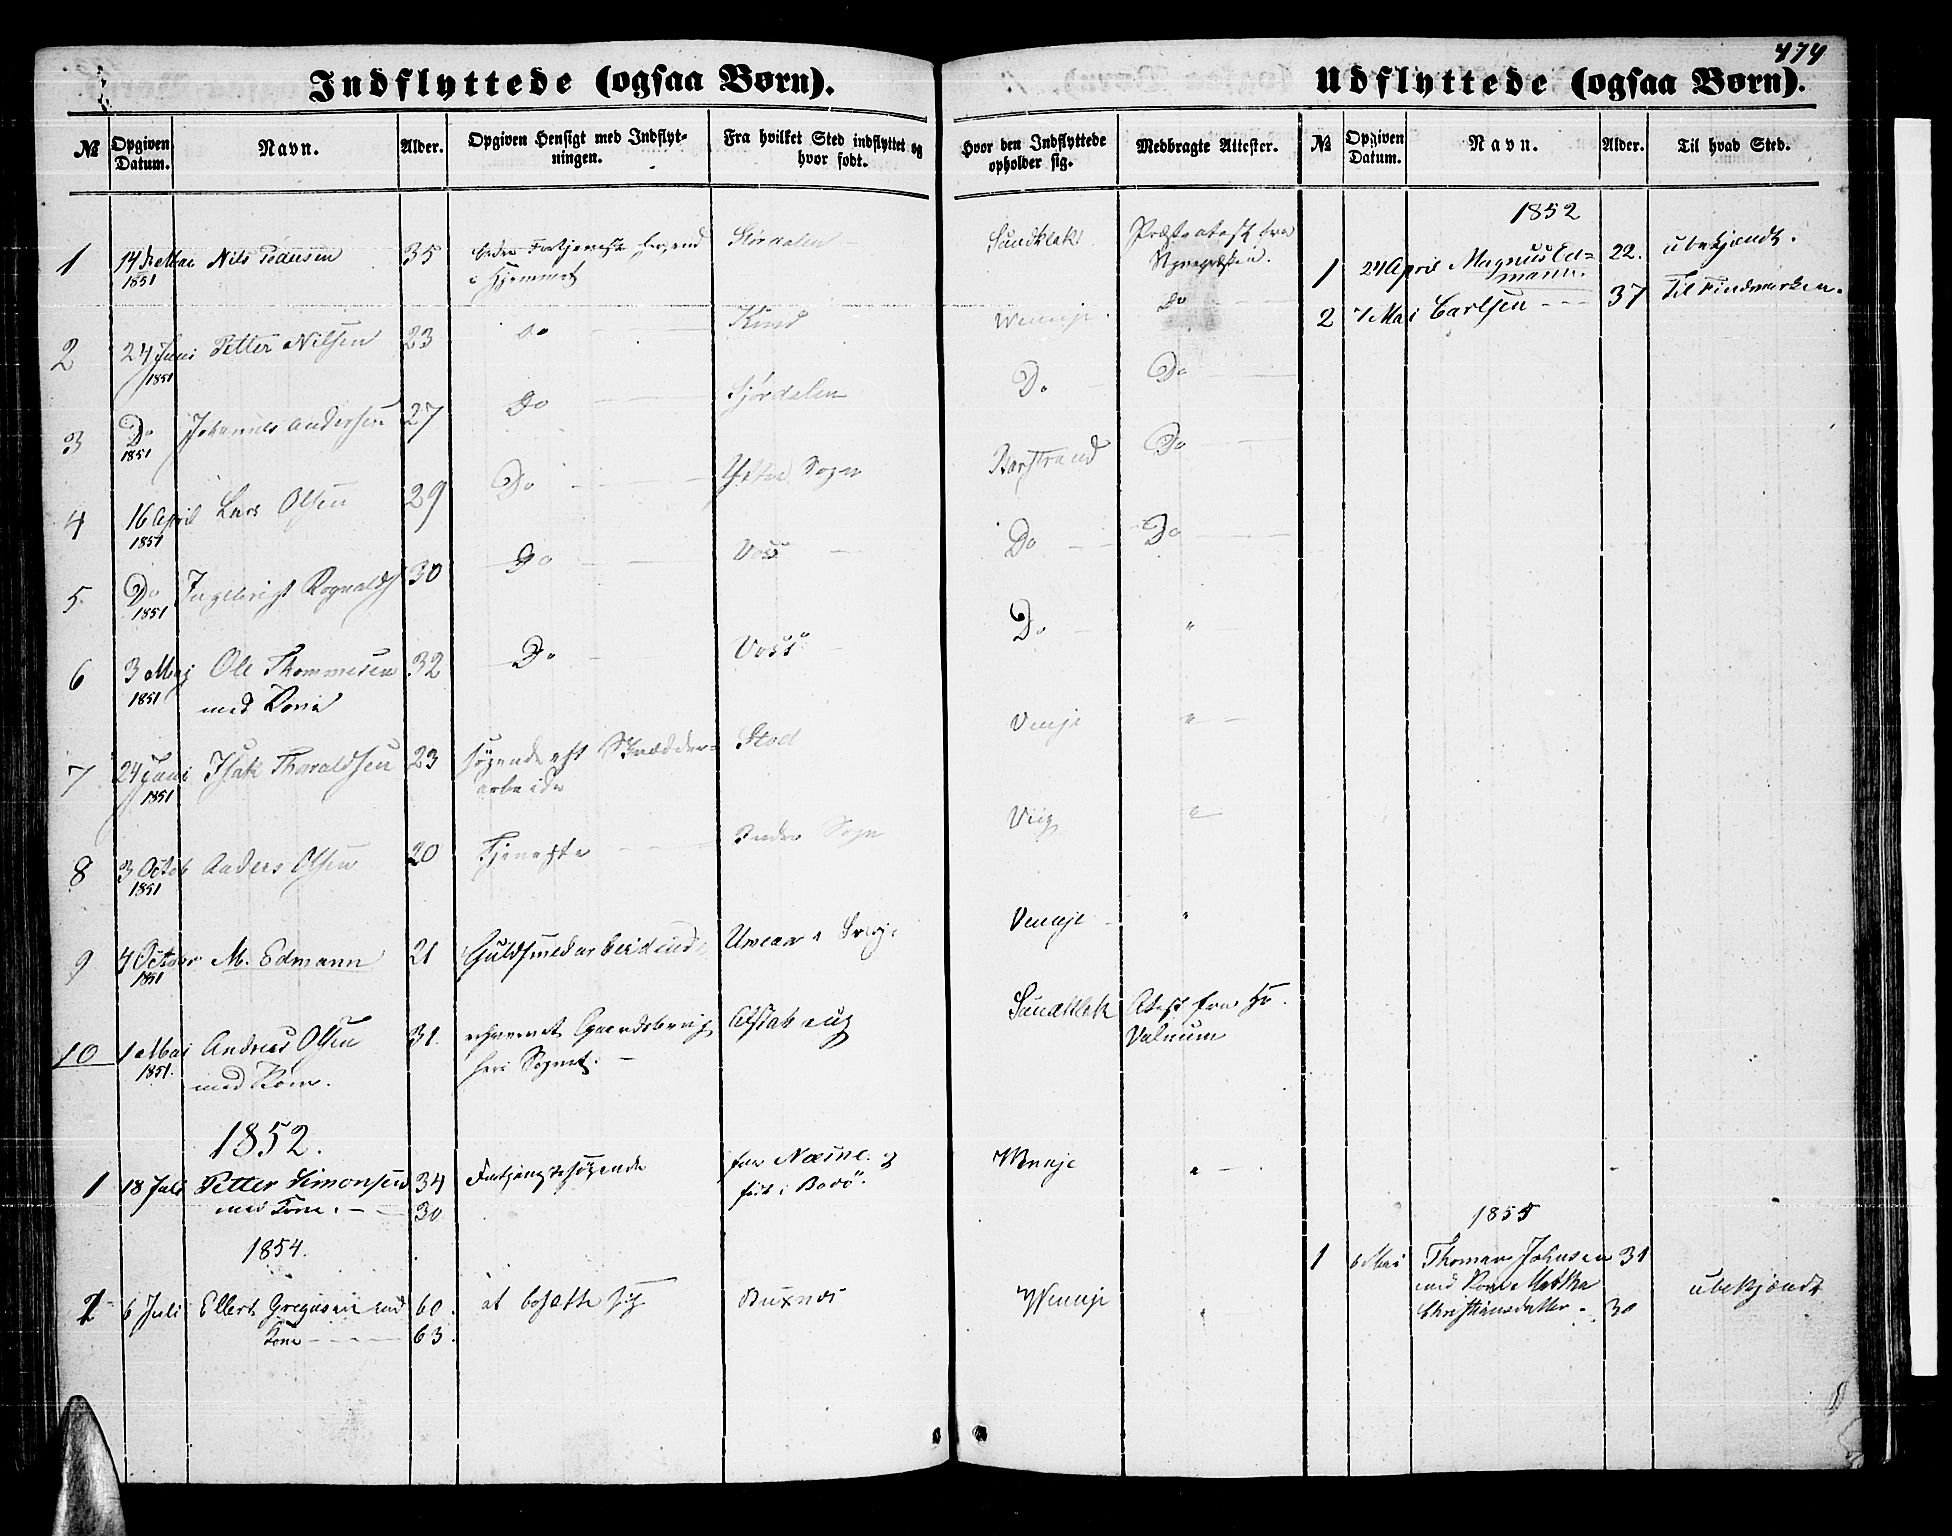 474
Indflyttede (ogsaa Børn).
Udflyttede (ogsaa Børn).
№ Opgiven Datum. Navn. Alder. Opgiven Hensigt med Indflytningen. Fra hvilket Sted indflyttet og hvor født. Hvor den Indflyttede opholder sig. Medbragte Attester.
№ Opgiven Datum. Navn. Alder. Til hvad Sted.
1 14de Mai 1851 Nils 35 bedre Fortjeneste i Hjemmet Sundklak Præsteatest fra
2 24 Juni 1851 Petter Nilsen 23 do Wennje Do
3 Do 1851 Johannes Andersen 27 Do Do Do
4 16 April 1851 Lars Olsen 29 Do Ytre Sogn Barstrand Do
5 Do 1851 Ingebrigt Rognalds 30 Do Voss Do Do
6 3 Maj 1851 Ole Thommesen med Kone 32 Do Voss Do "
7 24 Juni 1851 Isak Tharaldsen 23 søgende eft Skrædderarbeide Stod Vennje "
8 3 Octob 1851 Anders Olsen 20 Tjeneste Indre Sogn Viig "
9 4 October 1851 M. Edmann 21 Guldsmedarbeidende Umeaa Vennje "
10 1 Mai 1851. Andreas Olsen med Kone. 31. Gaardsbrug her i Sognet. Alstahaug Sundklak Atest fra
1852.
1 18 Juli Petter Simonsen 34 Fortjenestesøgende fra Næsne. og
med Kone. 30 født i Bodö. Wennje "
1854.
2 6 Juli Ellert Gregusen med 60. at bosætte sig Buxnes Wennje "
Kone 63.
1852
1 24 April Magnus Edmann. 22. ubekjendt.
2 7 Mai Carlsen 37 Til Findmarken.
1855
1 6 Mai Thomas Johnsen 31
med Kone Martha
Christiansdatter 30 ubekjendt